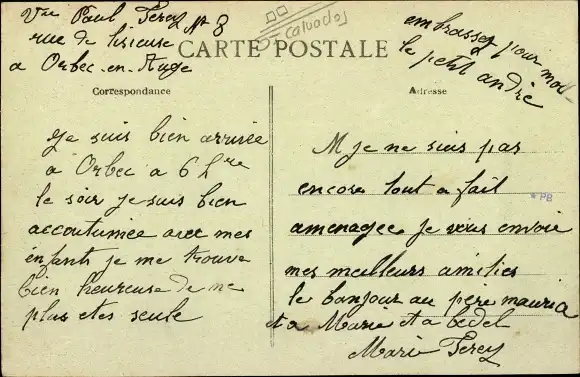 Vve Paul Ferey N° 8
rue de lisieuse
a Orbec-en-Auge
Calvados
embrassez pour moi
le petit andré
CARTE POSTALE
Correspondance
Adresse
Je suis bien arrivée
a Orbec a 6 hre
le soir je suis bien
accoutumée avec mes
enfants je me trouve
bien heureuse de ne
plus etes seule
M je ne suis pas
encore tout a fait
* PB
amenagee je vous envoie
mes meilleurs amities
le bonjour au père mauria
et a Marie et a bedel
Marie Ferey